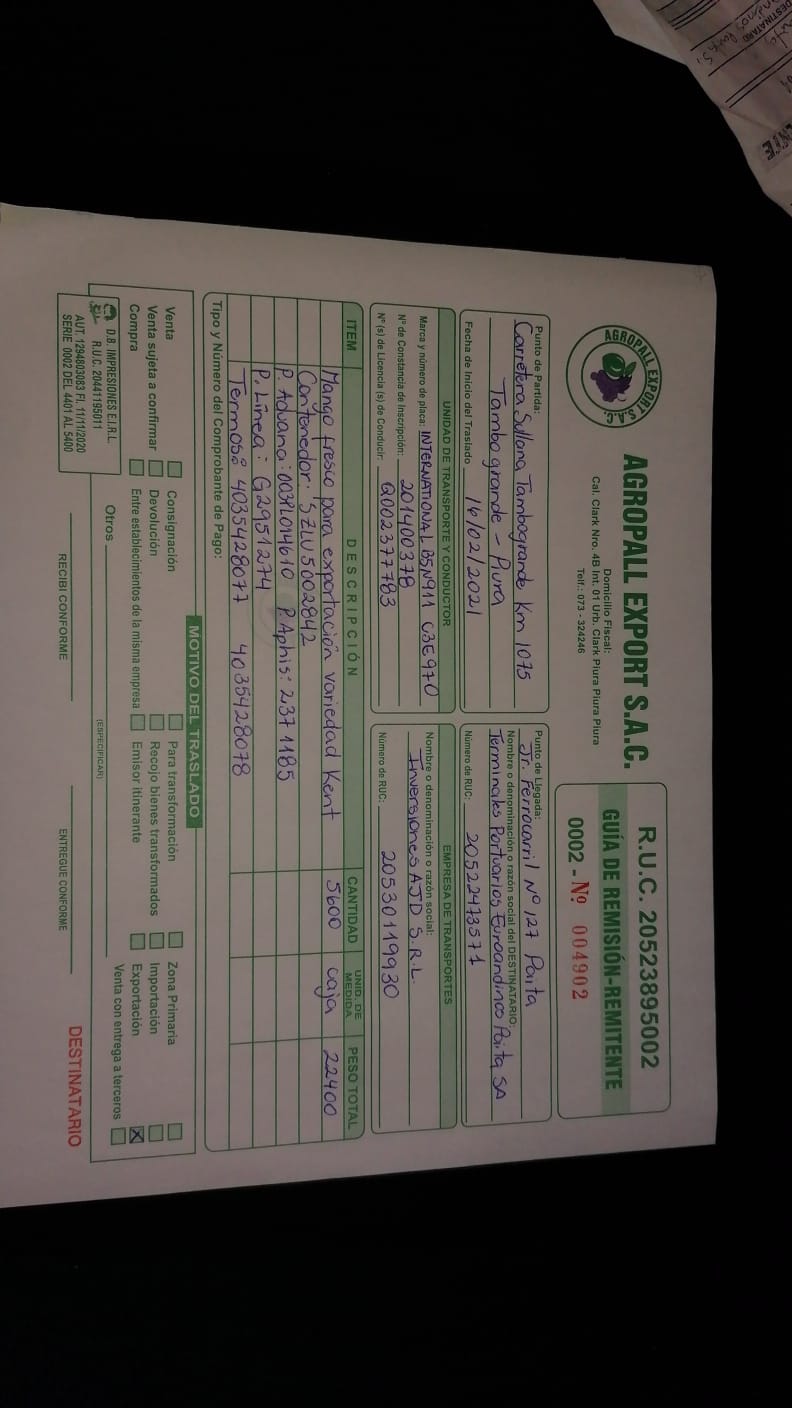 AGROPALL EXPORT S.A.C.
AGROPALL EXPORT S.A.C.
Domicilio Fiscal:
Cal. Clark Nro. 4B Int. 01 Urb. Clark Piura Piura Piura
Telf.: 073 - 324246
R.U.C. 20523895002
GUÍA DE REMISIÓN-REMITENTE
0002 - Nº 004902
Punto de Partida:
Carretera Sullana Tambogrande Km 1075
Tambogrande - Piura
Fecha de Inicio del Traslado 16/02/2021
Punto de Llegada:
Jr. Ferrocarril Nº 127 Paita
Nombre o denominación o razón social del DESTINATARIO:
Terminales Portuarios Euroandinos Paita SA
Número de RUC: 20522473571
UNIDAD DE TRANSPORTE Y CONDUCTOR
Marca y número de placa: INTERNATIONAL B5N911 C3E970
Nº de Constancia de Inscripción: 201400378
Nº (s) de Licencia (s) de Conducir: Q002377783
EMPRESA DE TRANSPORTES
Nombre o denominación o razón social:
Inversiones AJD S.R.L.
Número de RUC: 20530119930
ITEM DESCRIPCIÓN CANTIDAD UNID. DE MEDIDA PESO TOTAL
Mango fresco para exportación variedad Kent 5600 caja 22400
Contenedor: SZLU5002842
P. Aduana: 003PL014610 P. Aphis: 2371185
P. Línea: G2951274
Termos: 4035428077 4035428078
Tipo y Número del Comprobante de Pago:
MOTIVO DEL TRASLADO
Venta Consignación Para transformación Zona Primaria
Venta sujeta a confirmar Devolución Recojo bienes transformados Importación
Compra Entre establecimientos de la misma empresa Emisor itinerante Exportación X
Venta con entrega a terceros
Otros
(ESPECIFICAR)
D.B. IMPRESIONES E.I.R.L.
R.U.C. 20441195011
AUT. 1294803083 FI. 11/11/2020
SERIE 0002 DEL 4401 AL 5400
RECIBI CONFORME
ENTREGUE CONFORME
DESTINATARIO